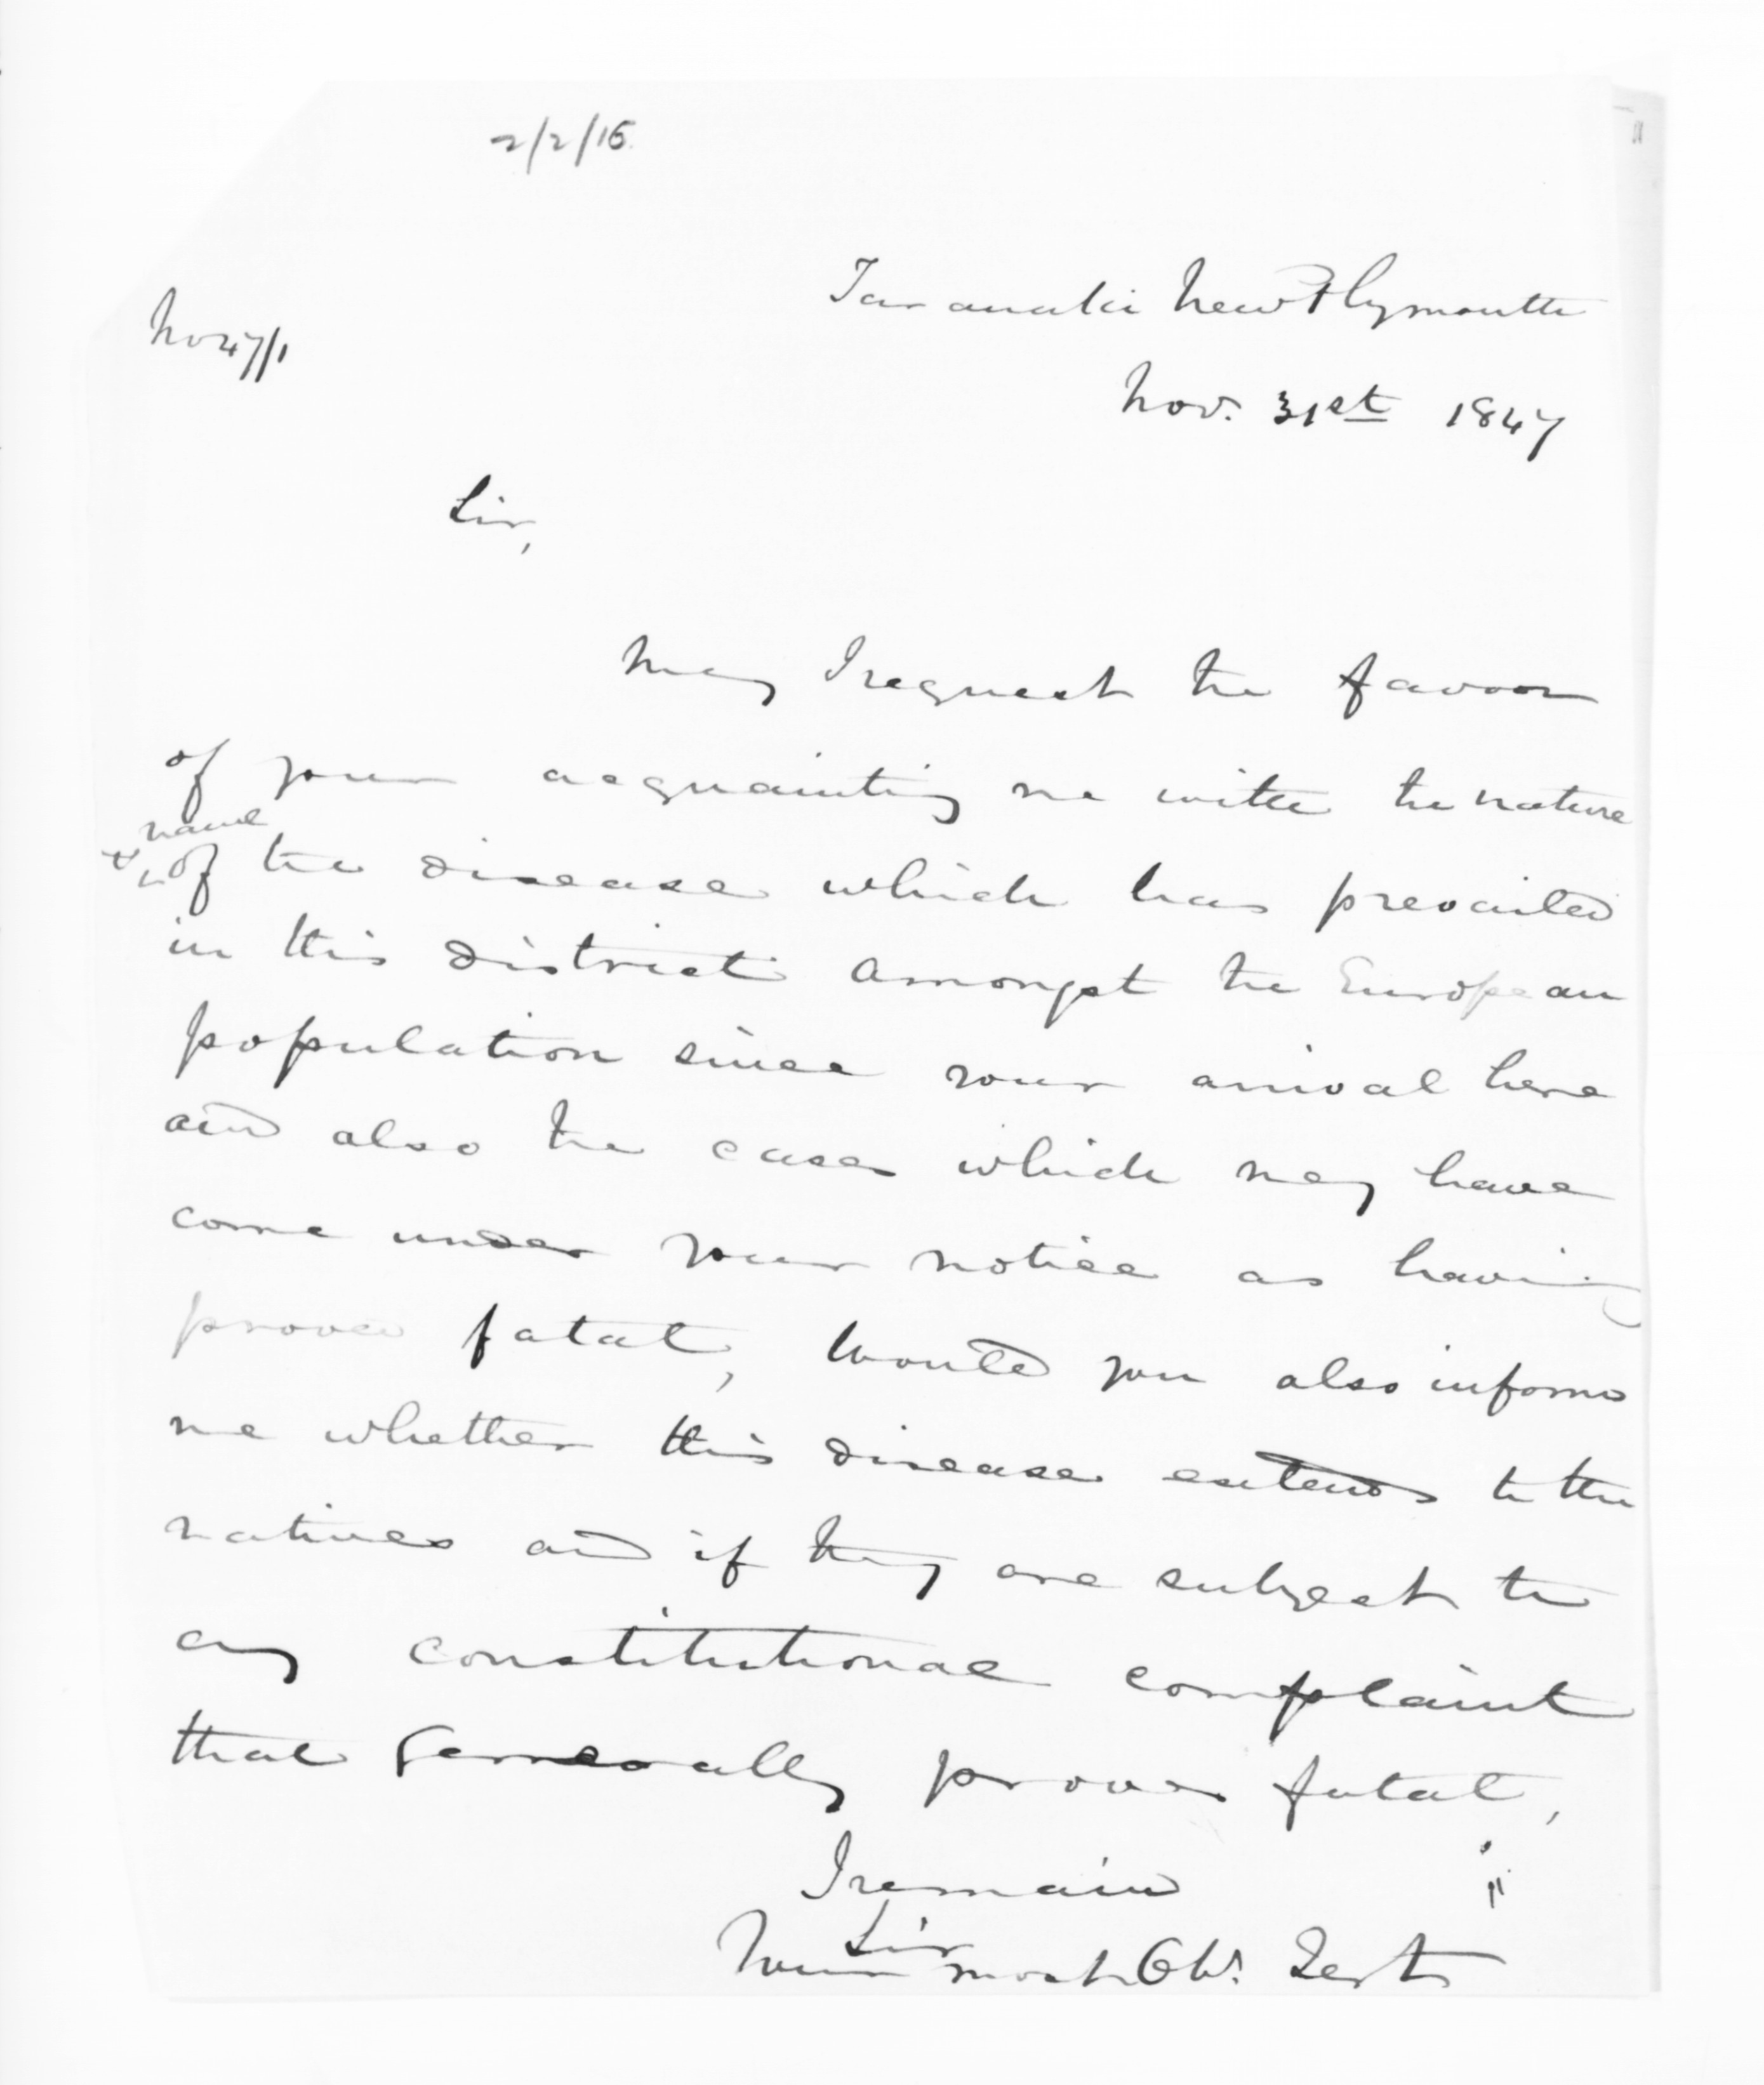 2/2/15
Taranaki New Plymouth
No 47/1
Nov. 31st 1847
Sir,
May I request the favor
of your acquainting me with the nature
& name
of the disease which has prevailed
in this district amongst the European
population since your arrival here
and also the cases which may have
come under your notice as having
proved fatal, Would you also inform
me whether this disease extends to the
natives and if they are subject to
any constitutional complaint
that generally proves fatal,
I remain
Sir
Your most Obt. Servt